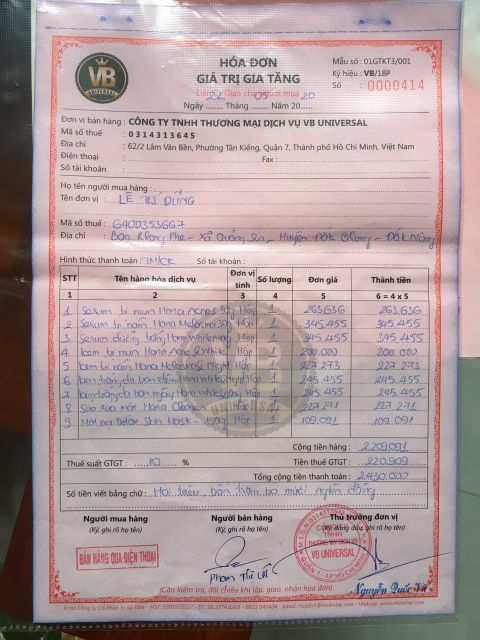 VB
UNIVERSAL
HÓA ĐƠN
GIÁ TRỊ GIA TĂNG
Liên 2: Giao cho người mua
Ngày 22 Tháng 05 Năm 2020
Mẫu số : 01GTKT3/001
Ký hiệu : VB/18P
Số : 0000414
Đơn vị bán hàng : CÔNG TY TNHH THƯƠNG MẠI DỊCH VỤ VB UNIVERSAL
Mã số thuế : 0314313645
Địa chỉ : 62/2 Lâm Văn Bền, Phường Tân Kiểng, Quận 7, Thành phố Hồ Chí Minh, Việt Nam
Điện thoại : Fax :
Số tài khoản :
Họ tên người mua hàng :
Tên đơn vị : LÊ THỊ DUNG
Mã số thuế :
Địa chỉ : Bon Phe - Xã Quảng Sơn - Huyện Đăk Glong - Đăk Nông
Hình thức thanh toán : TM/CK Số tài khoản :
STT Tên hàng hóa dịch vụ Đơn vị tính Số lượng Đơn giá Thành tiền
1 2 3 4 5 6 = 4 x 5
1 Serum trị mụn Hana Acnes 30g Hộp 1 263,636 263,636
2 Serum trị nám Hana Melasma 30g Hộp 1 345,455 345,455
3 Serum dưỡng trắng Hana White Hộp 1 345,455 345,455
4 Kem trị mụn Hana Acne & White Hộp 1 200,000 200,000
5 Kem trị nám Hana Melasma & Night Hộp 1 227,273 227,273
6 Kem trắng da ban đêm Hana White & Night Hộp 1 245,455 245,455
7 Kem trắng da ban ngày Hana White Hộp 1 245,455 245,455
8 Sữa rửa mặt Hana Cleanser Hộp 1 227,271 227,271
9 Mặt nạ Detox Skin Mask - 100g Hộp 1 109,091 109,091
Cộng tiền hàng : 2,209,091
Thuế suất GTGT : 10 % Tiền thuế GTGT : 220,909
Tổng cộng tiền thanh toán : 2,430,000
Số tiền viết bằng chữ : Hai triệu bốn trăm ba mươi nghìn đồng
Người mua hàng Người bán hàng Thủ trưởng đơn vị
(Ký, ghi rõ họ tên) (Ký, ghi rõ họ tên) (Ký, đóng dấu, ghi rõ họ tên)
BÁN HÀNG QUA ĐIỆN THOẠI
CÔNG TY
TNHH
THƯƠNG MẠI DỊCH VỤ
VB UNIVERSAL
QUẬN 7 - T.P HỒ CHÍ MINH
Phạm Thị
Nguyễn Quốc Vũ
(Cần kiểm tra, đối chiếu khi lập, giao, nhận hóa đơn)